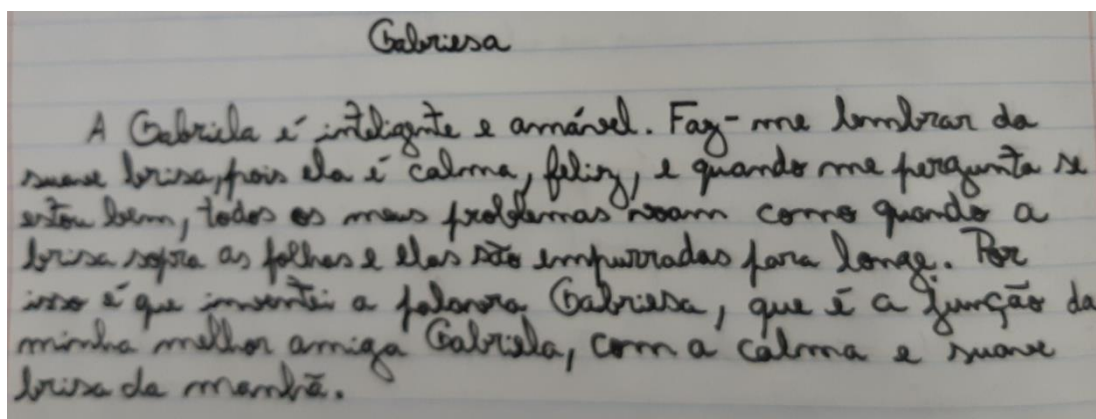 Gabriesa
A Gabriela é inteligente e amável. Faz-me lembrar da
suave brisa, pois ela é calma, feliz, e quando me pergunta se
estou bem, todos os meus problemas voam como quando a
brisa sopra as folhas e elas são empurradas para longe. Por
isso é que inventei a palavra Gabriesa, que é a junção da
minha melhor amiga Gabriela, com a calma e suave
brisa da manhã.